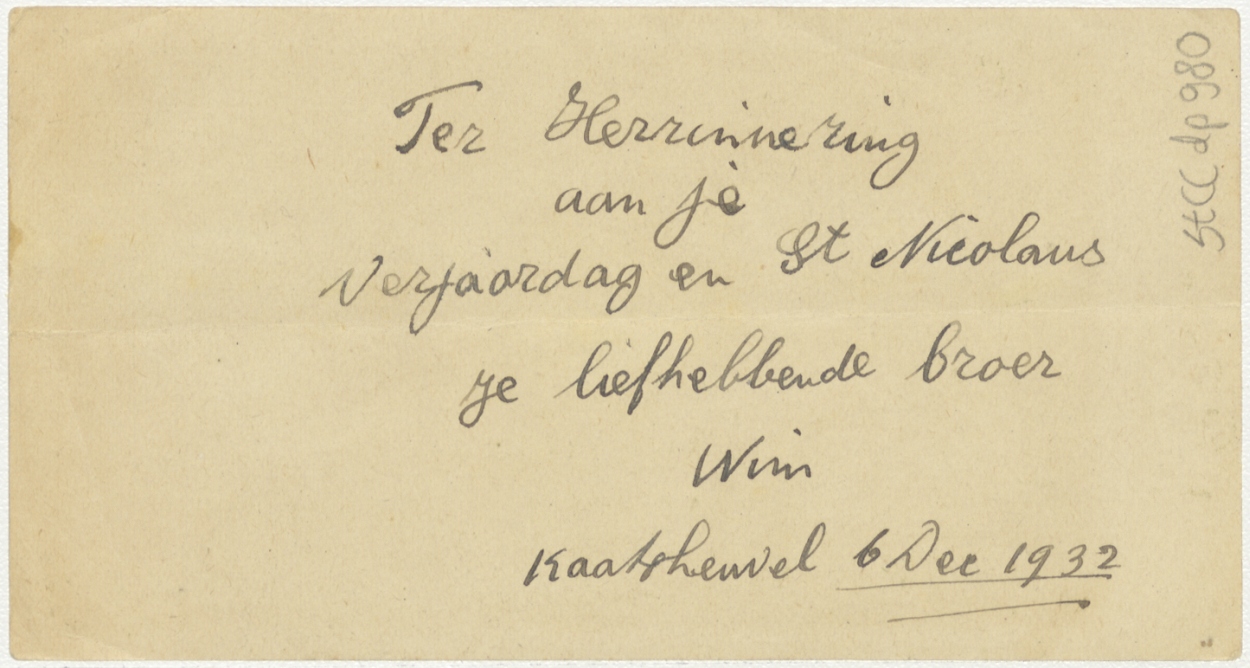 Ter Herrinnering
aan je
Verjaardag en St Nicolaus
je liefhebbende broer
Wim
Kaatsheuvel 6 Dec 1932
StCC dp 980